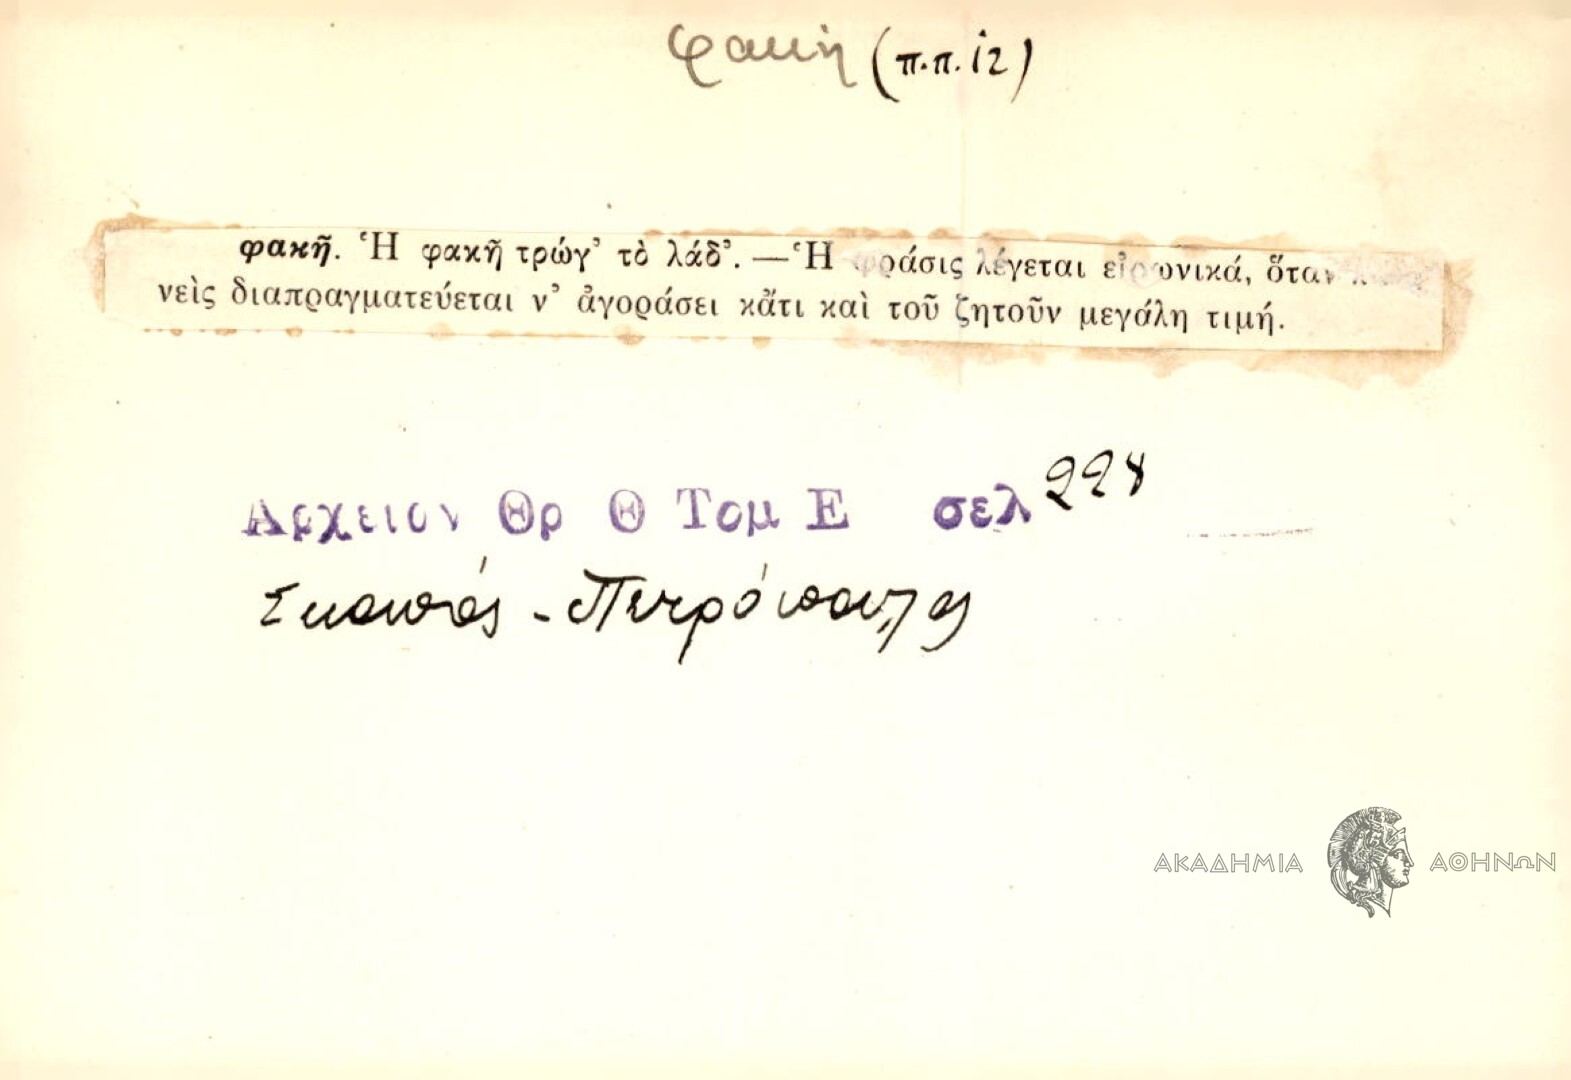 φακή (π.π. ί2)
φακῆ. Ἡ φακῆ τρώγ' τὸ λάδ'. — Ἡ φράσις λέγεται εἰρωνικά, ὅταν
νεὶς διαπραγματεύεται ν' ἀγοράσει κἄτι καὶ τοῦ ζητοῦν μεγάλη τιμή.
Αρχειον Θρ Θ Τομ Ε σελ 228
Σκοπός - Πετρόπουλος
ΑΚΑΔΗΜΙΑ ΑΘΗΝΩΝ